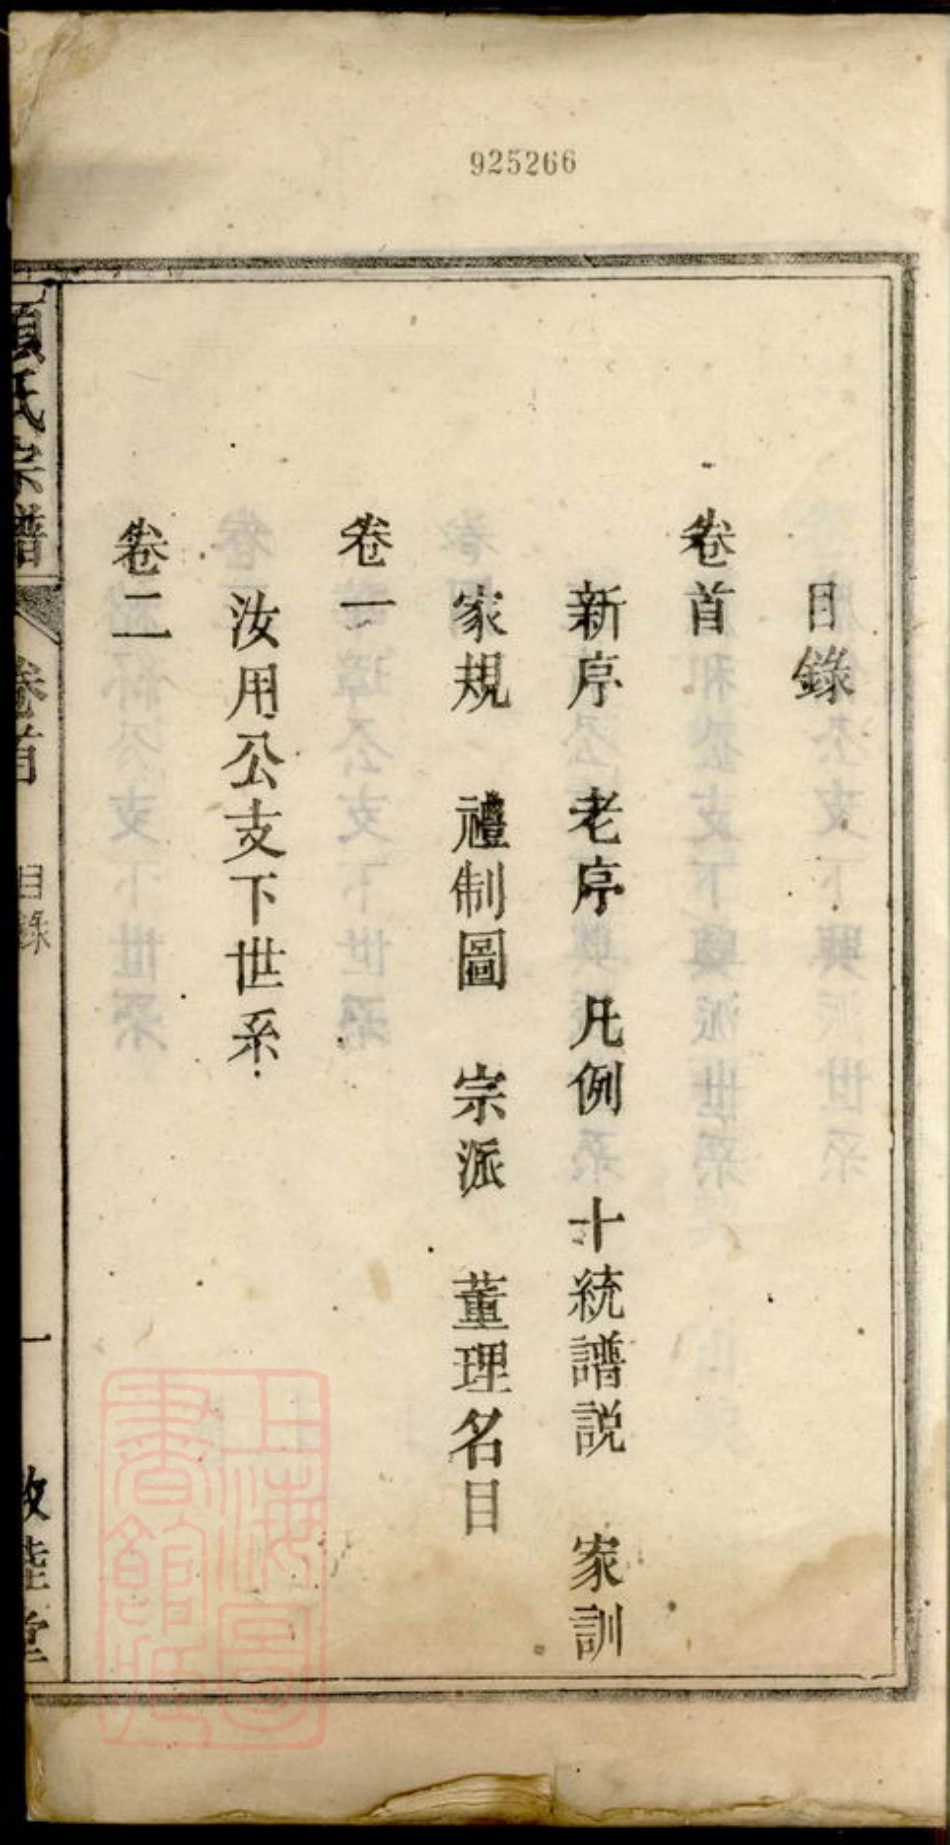 925266
目錄
卷首
新序 老序 凡例 十統譜説 家訓
家規 禮制圖 宗派 董理名目
卷一
汝用公支下世系
卷二
氏宗譜 卷首 目錄 一 敦睦堂
上海圖
書館藏